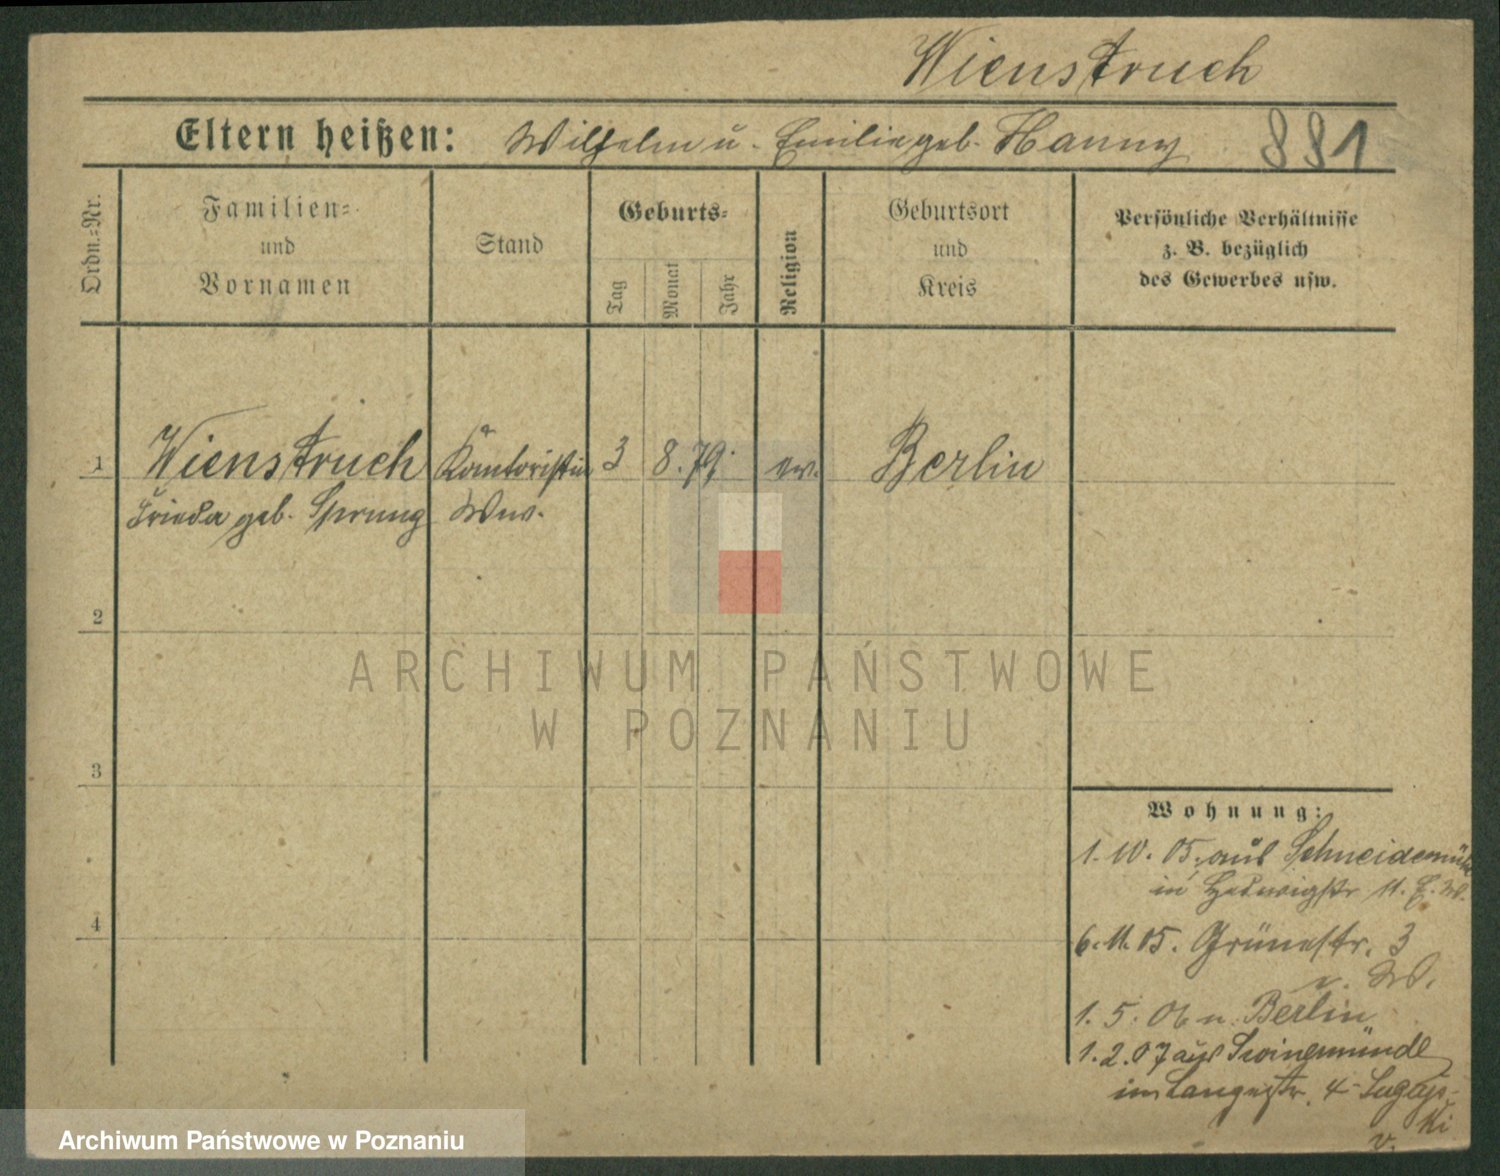 Wienstruch
Eltern heißen: Wilhelm u. Emilie geb. Hanny 881
Ordn.=Nr.
Familien=
und
Vornamen
Stand
Geburts=
Tag
Monat
Jahr
Religion
Geburtsort
und
Kreis
Persönliche Verhältnisse
z. B. bezüglich
des Gewerbes usw.
1 Wienstruch Kontoristin 3 8. 79. ev. Berlin
Frieda geb. Sprung Wwe.
2
3
4
ARCHIWUM PAŃSTWOWE
W POZNANIU
Wohnung:
1. 10. 05. aus Schneidemühl
in Hedwigstr 11.
6. 11. 05. Grünestr. 3
1. 5. 06 n. Berlin
1. 2. 07 aus Swinemünde
in Langestr. 4
v.
Archiwum Państwowe w Poznaniu